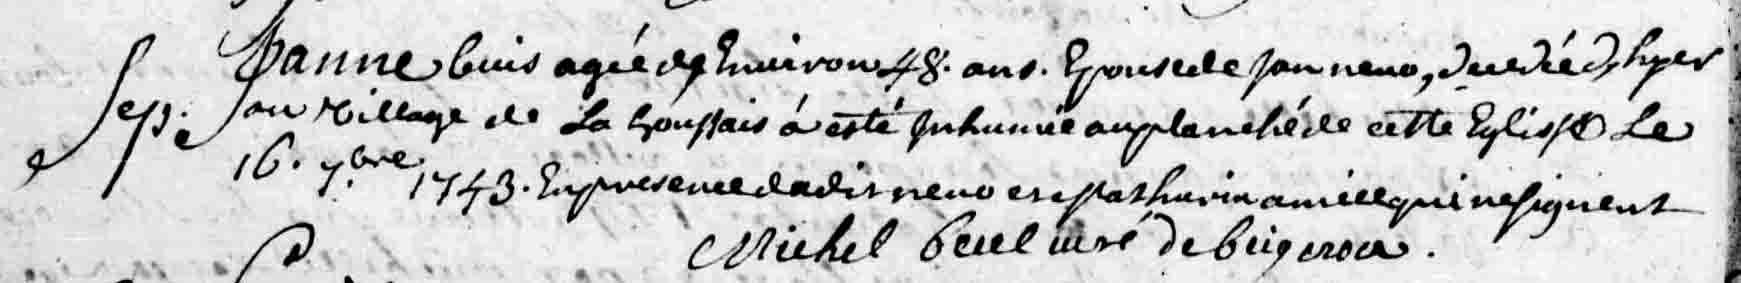 Janne buis agée de Environ 48. ans. Epouse de Jan neuo, decedée d'hyer
Sep. re au village de La houssais á esté Inhumée au planché de cette Eglisse Le
16. 7.bre 1743. En presence dudit neuo et Mathurin amice qui ne signent
Michel curé de